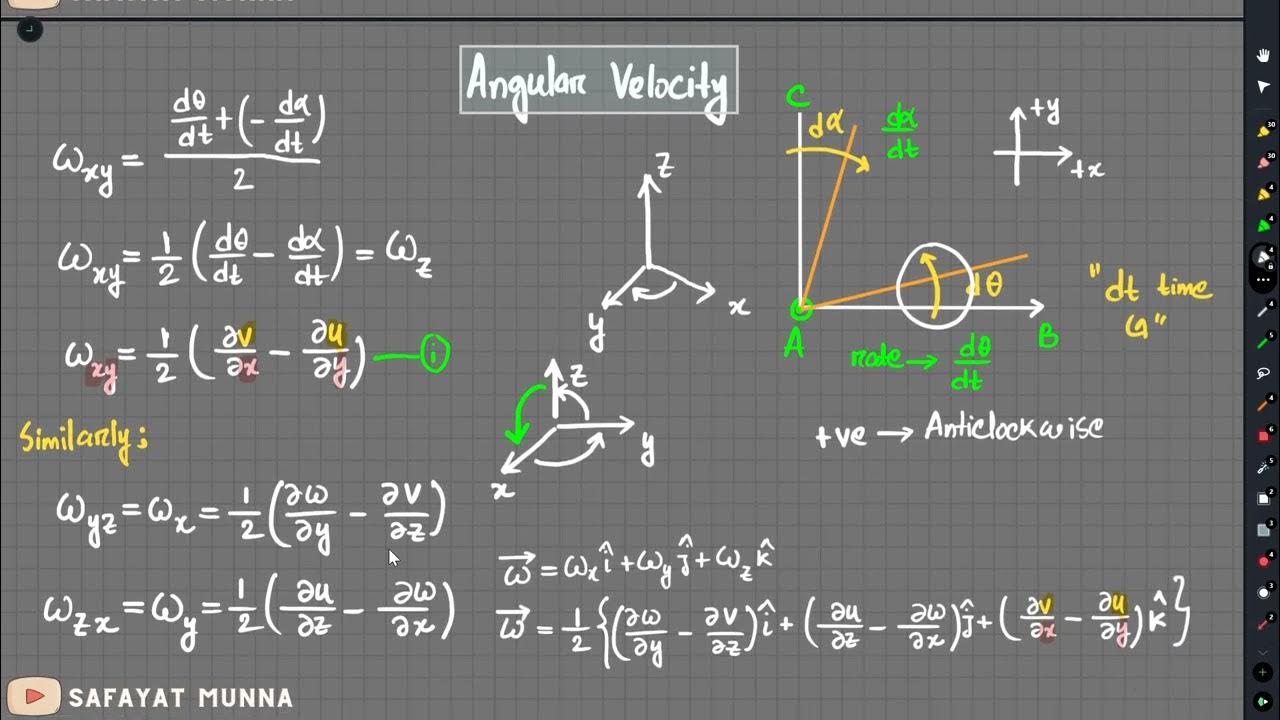 Angular Velocity
ω_xy = (dθ/dt + (- dα/dt)) / 2
ω_xy = 1/2 (dθ/dt - dα/dt) = ω_z
ω_xy = 1/2 (∂v/∂x - ∂u/∂y) — (i)
Similarly;
ω_yz = ω_x = 1/2 (∂ω/∂y - ∂v/∂z)
ω_zx = ω_y = 1/2 (∂u/∂z - ∂ω/∂x)
z
x
y
z
y
x
C
dα
dα/dt
+y
+x
dθ
A
B
"dt time
rate → dθ/dt
+ve → Anticlockwise
ω⃗ = ω_x î + ω_y ĵ + ω_z k̂
ω⃗ = 1/2 {(∂ω/∂y - ∂v/∂z) î + (∂u/∂z - ∂ω/∂x) ĵ + (∂v/∂x - ∂u/∂y) k̂}
SAFAYAT MUNNA